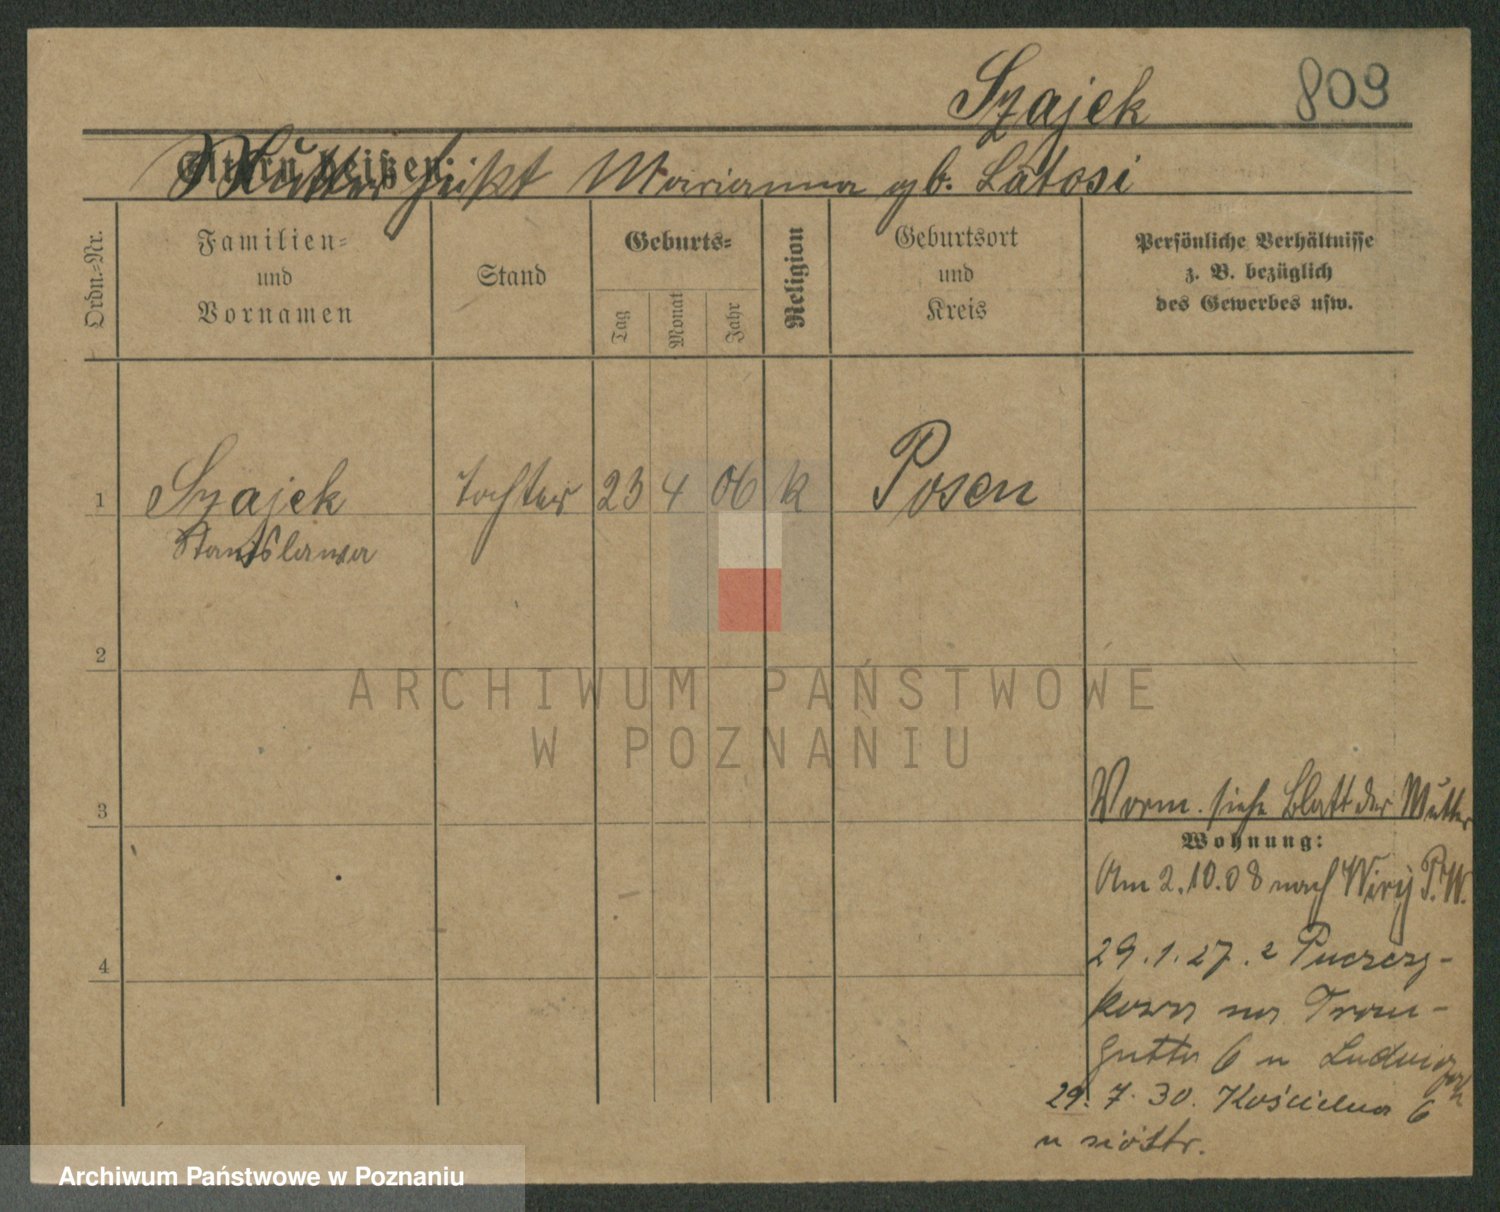 Szajek 809
Eltern heißen:
Mutter heißt Marianna gb. Latosi
Ordn.-Nr.
Familien-
und
Vornamen
Stand
Geburts-
Tag
Monat
Jahr
Religion
Geburtsort
und
Kreis
Persönliche Verhältnisse
z. B. bezüglich
des Gewerbes usw.
1 Szajek Tochter 23 4 06 k Posen
Stanislawa
2
ARCHIWUM PAŃSTWOWE
W POZNANIU
3
Vorm. siehe Blatt der Mutter
Wohnung:
Am 2.10.08 nach Wiry P.W.
29.1.27. z
4
kowa na Trau-
gutta 6 u
29. 7. 30. Kościelna 6
u sióstr.
Archiwum Państwowe w Poznaniu